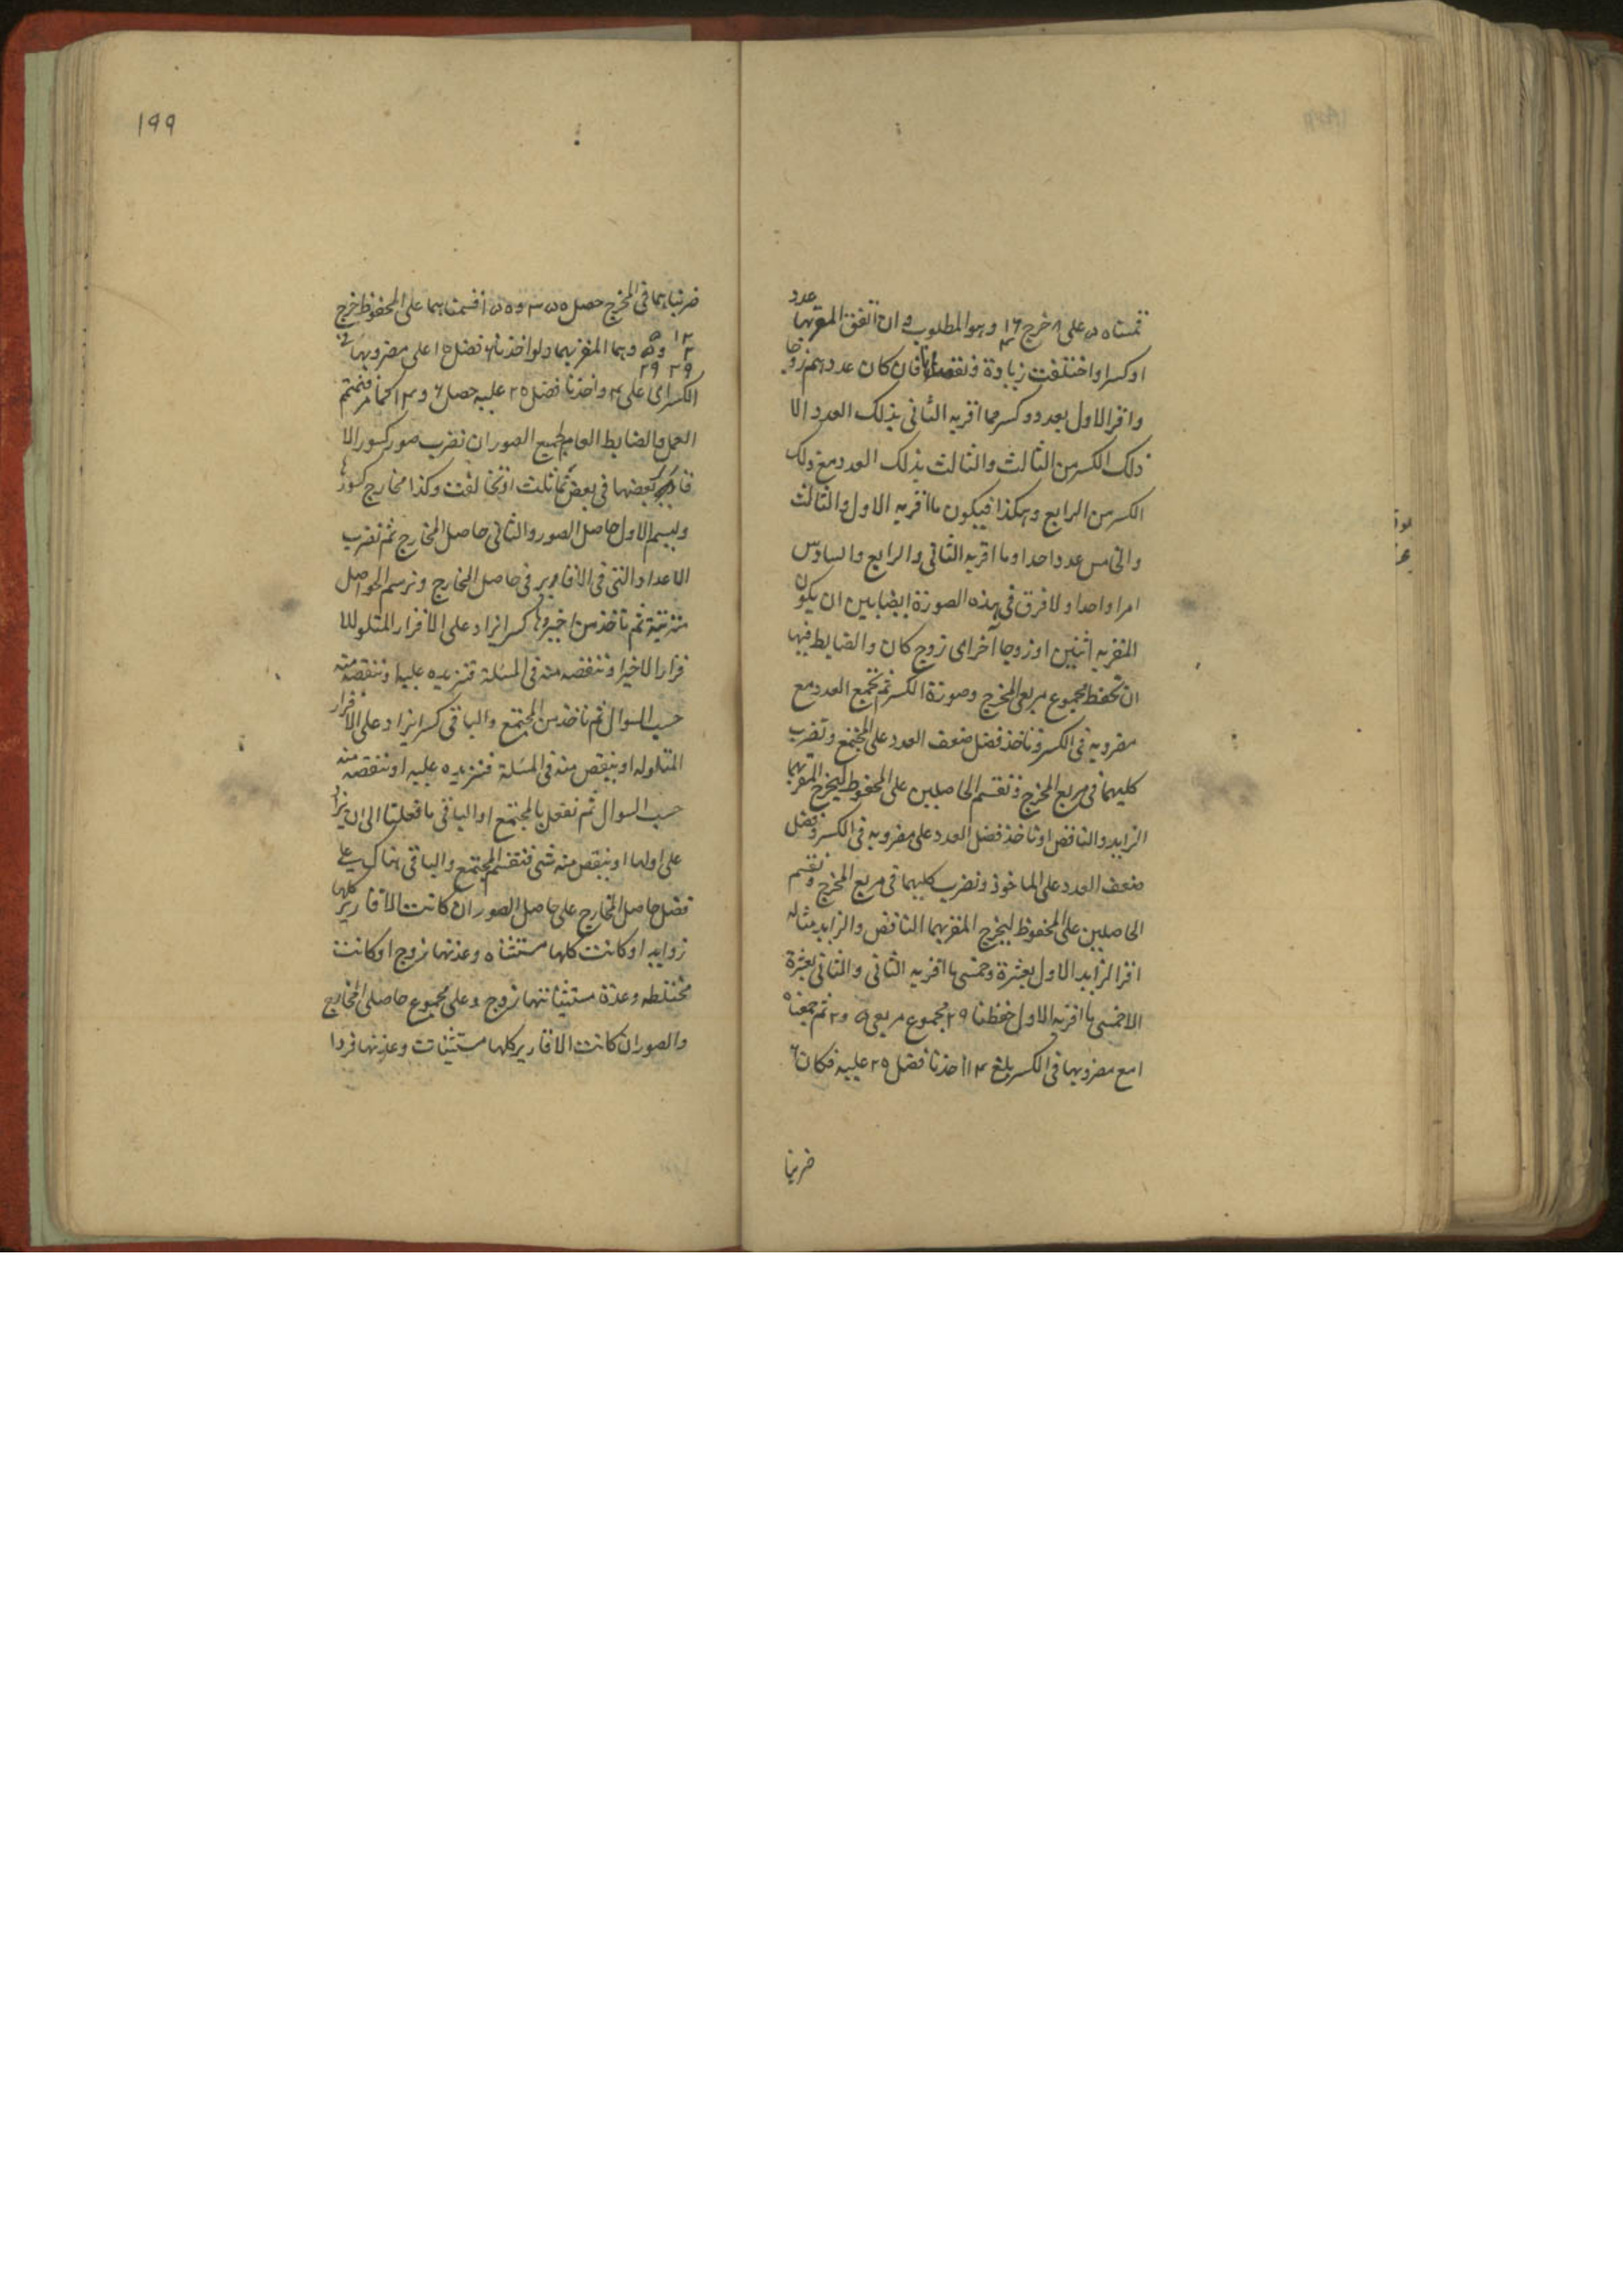 قسمناه على ٨ خرج ١٦ وهو المطلوب وان اتفق المقر بها عدد
او كسرا واختلفت زيادة ونقصانا فان كان عددهم زوجا
واقر الاول بعدد وكسر مما اقربه الثانى بذلك العدد الا
ذلك الكسر من الثالث والثالث بذلك العدد مع ذلك
الكسر من الرابع وهكذا فيكون ما اقربه الاول والثالث
والخامس عددا واحدا وما اقربه الثانى والرابع والسادس
امرا واحدا ولا فرق فى هذه الصورة ايضا بين ان يكون
المقربه اثنين او زوجا آخر اى زوج كان والضابط فيها
ان تحفظ مجموع مربعى المخرج وصورة الكسر ثم تجمع العدد مع
مضروبه فى الكسر وتاخذ فضل ضعف العدد على المجتمع وتضرب
كليهما فى مربع المخرج وتقسم الحاصلين على المحفوظ ليخرج المقربهما
الزايد والناقص او تاخذ فضل العدد على مضروبه فى الكسر وفضل
ضعف العدد على الماخوذ وتضرب كليهما فى مربع المخرج وتقسم
الحاصلين على المحفوظ ليخرج المقربهما الناقص والزايد مثاله
اقر الزايد الاول بعشرة وخمسى ما اقربه الثانى والثانى بعشرة
الا خمسى ما اقربه الاول حفظنا ٢٩ مجموع مربعى ٥ و٢ ثم جمعناه
مع مضروبهما فى الكسر بلغ ١٤ اخذنا فضل ٢٥ عليه فكان ٦
ضربنا
١٩٩
ضربناهما فى المخرج حصل و قسمناهما على المحفوظ خرج
١٢ و ٥
٢
٢٩ ٢٩ وهما المقربهما ولو اخذنا فضل ١٥ على مضروبها فى
الكسر اى على واخذنا فضل ٢٥ عليه حصل ٦ و كما مر فتمتم
العمل والضابط العام لجميع الصور ان تضرب صور كسور الا
قارير بعضها فى بعض تماثلت او تخالفت وكذا مخارج كسورها
وليسم الاول حاصل الصور والثانى حاصل المخارج ثم تضرب
الاعداد التى فى الاقارير فى حاصل المخارج وترسم الحواصل
مترتبة ثم تاخذ من اخيرها كسرا يزاد على الاقرار المتلو للا
قرار الاخير او تنقصه منه فى المسئلة فتزيده عليه او تنقصه منه
حسب السوال ثم تاخذ من المجتمع والباقى كسرا يزاد على الاقرار
المتلو له او ينقص منه فى المسئلة فتزيده عليه او تنقصه منه
حسب السوال ثم تفعل بالمجتمع او الباقى ما فعلنا الى ان يزاد
على اولها او ينقص منه شى فتقسم المجتمع والباقى هناك على
فضل حاصل المخارج على حاصل الصور ان كانت الاقارير كلها
زوايد او كانت كلها مستثناه وعدتها زوج او كانت
مختلطه وعدة مستثنياتها زوج وعلى مجموع حاصلى المخارج
والصور ان كانت الاقارير كلها مستثنيات وعدتها فردا